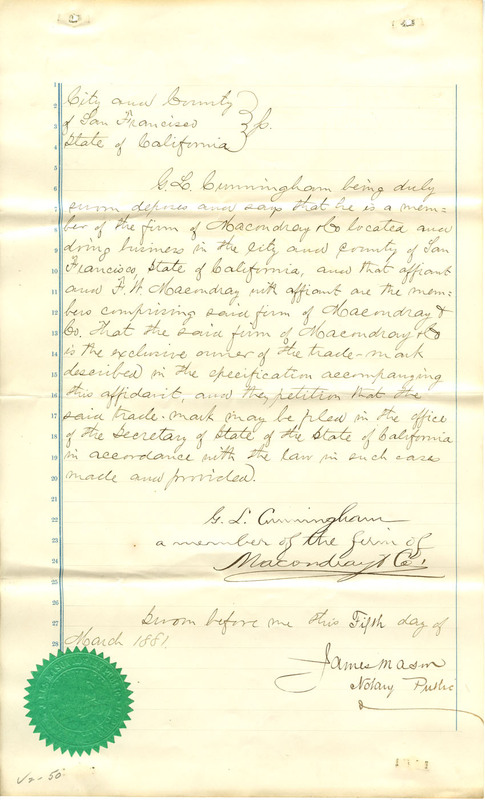 1
2
City and County
3
of San Francisco } ss.
4
State of California
5
6
G. L. Cunningham being duly
7
sworn deposes and says that he is a mem=
8
ber of the firm of Macondray & Co located and
9
doing business in the City and County of San
10
Francisco, State of California, and that affiant
11
and F. W. Macondray with affiant are the mem=
12
bers comprising said firm of Macondray &
13
Co. That the said firm of Macondray & Co
14
is the exclusive owner of the trade-mark
15
described in the specification accompanying
16
this affidavit, and they petition that the
17
said trade-mark may be filed in the office
18
of the Secretary of State of the State of California
19
in accordance with the law in such case
20
made and provided.
21
22
G. L. Cunningham
23
a member of the firm of
24
Macondray & Co.
25
26
27
Sworn before me this Fifth day of
28
March 1881.
James Mason
Notary Public